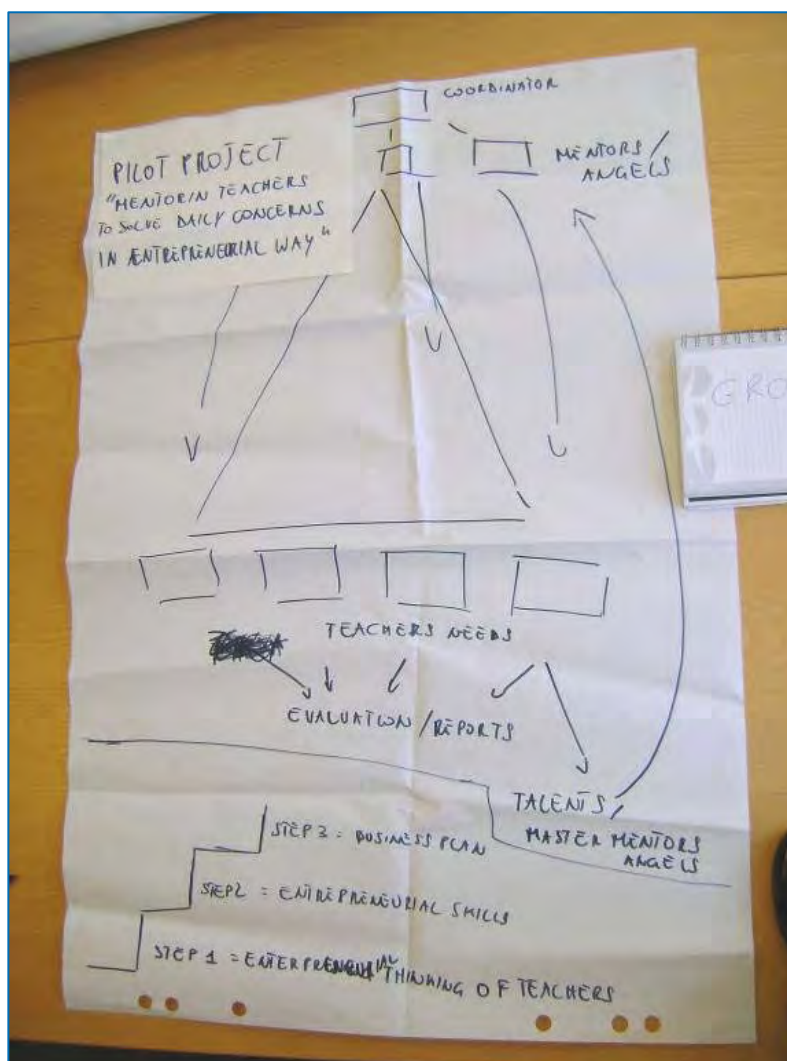 COORDINATOR
PILOT PROJECT
"MENTORIN TEACHERS
TO SOLVE DAILY CONCERNS
IN ÆNTREPRENEURIAL WAY"
MENTORS/
ANGELS
GRO
TEACHERS NEEDS
EVALUATION/REPORTS
TALENTS/
MASTER MENTORS
ANGELS
STEP 3 = BUSINESS PLAN
STEP2 = ENTREPRENEURIAL SKILLS
STEP 1 = THINKING OF TEACHERS